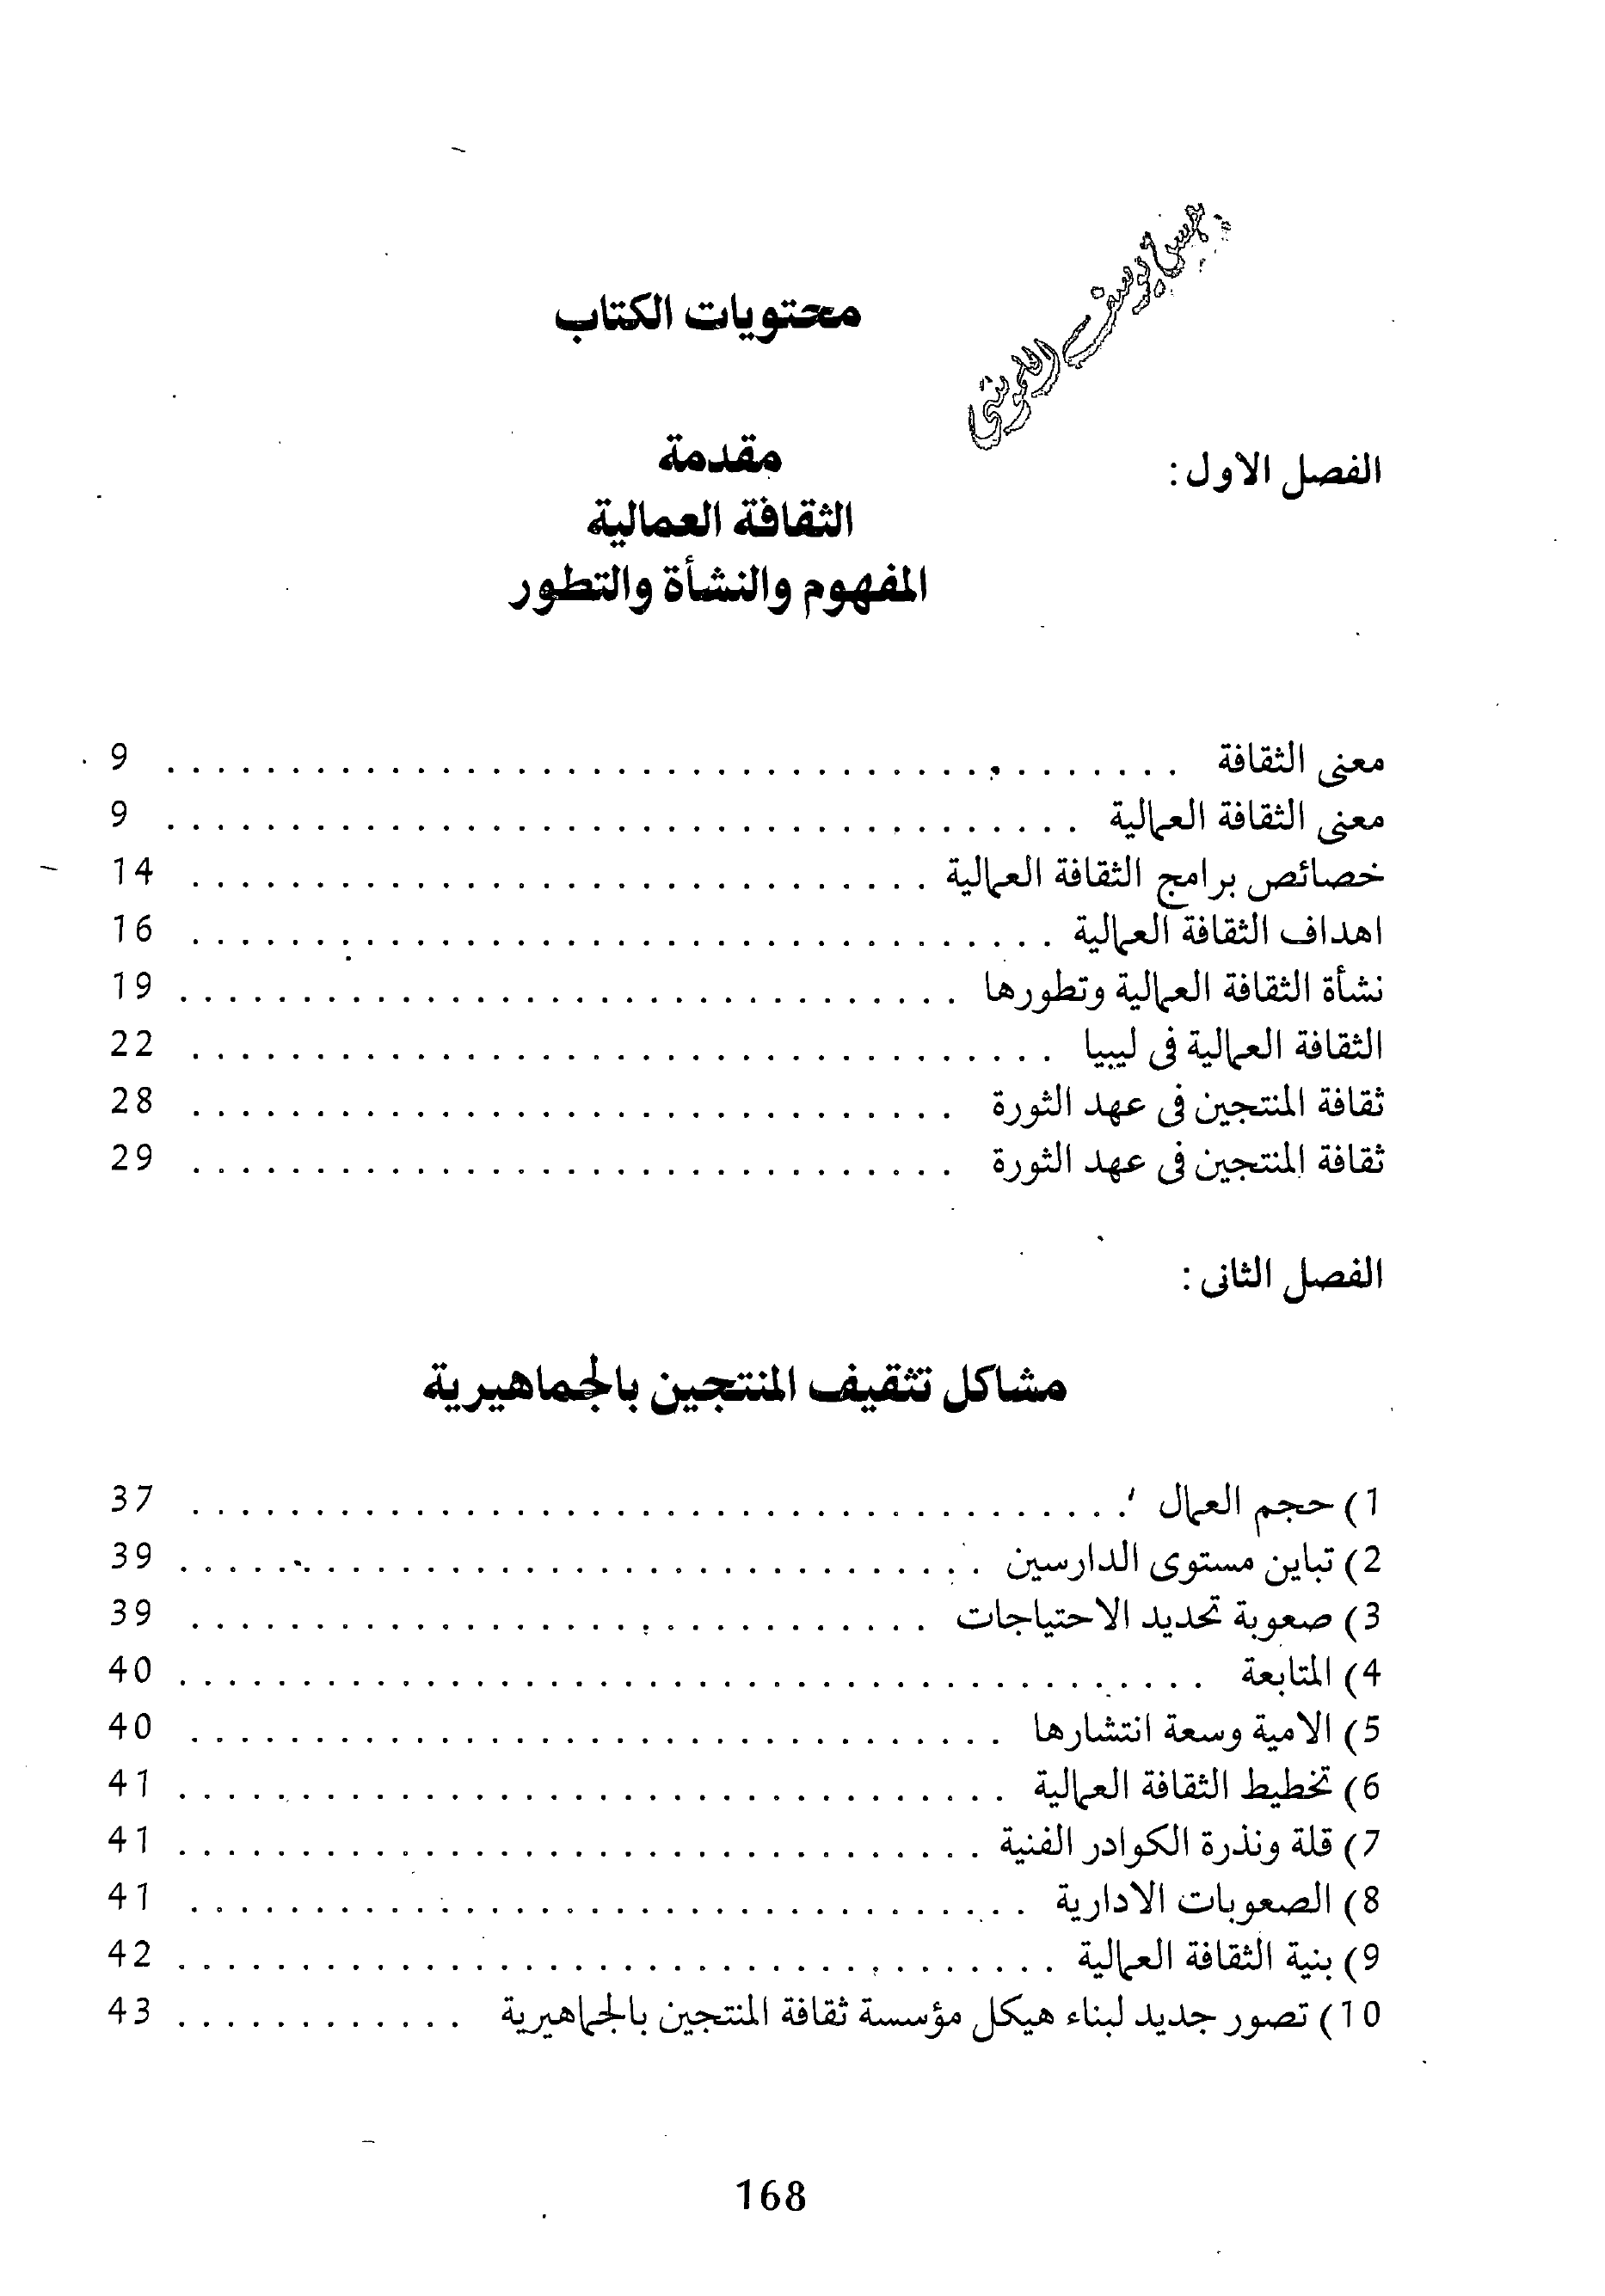 محتويات الكتاب
الفصل الاول :
مقدمة
الثقافة العمالية
المفهوم والنشأة والتطور
معنى الثقافة . . . . . . . . . . 9
معنى الثقافة العمالية . . . . . . . . . . 9
خصائص برامج الثقافة العمالية . . . . . . . . . . 14
اهداف الثقافة العمالية . . . . . . . . . . 16
نشأة الثقافة العمالية وتطورها . . . . . . . . . . 19
الثقافة العمالية فى ليبيا . . . . . . . . . . 22
ثقافة المنتجين فى عهد الثورة . . . . . . . . . . 28
ثقافة المنتجين فى عهد الثورة . . . . . . . . . . 29
الفصل الثانى :
مشاكل تثقيف المنتجين بالجماهيرية
1) حجم العمال . . . . . . . . . . 37
2) تباين مستوى الدارسين . . . . . . . . . . 39
3) صعوبة تحديد الاحتياجات . . . . . . . . . . 39
4) المتابعة . . . . . . . . . . 40
5) الامية وسعة انتشارها . . . . . . . . . . 40
6) تخطيط الثقافة العمالية . . . . . . . . . . 41
7) قلة ونذرة الكوادر الفنية . . . . . . . . . . 41
8) الصعوبات الادارية . . . . . . . . . . 41
9) بنية الثقافة العمالية . . . . . . . . . . 42
10) تصور جديد لبناء هيكل مؤسسة ثقافة المنتجين بالجماهيرية . . . . . . . . . . 43
168